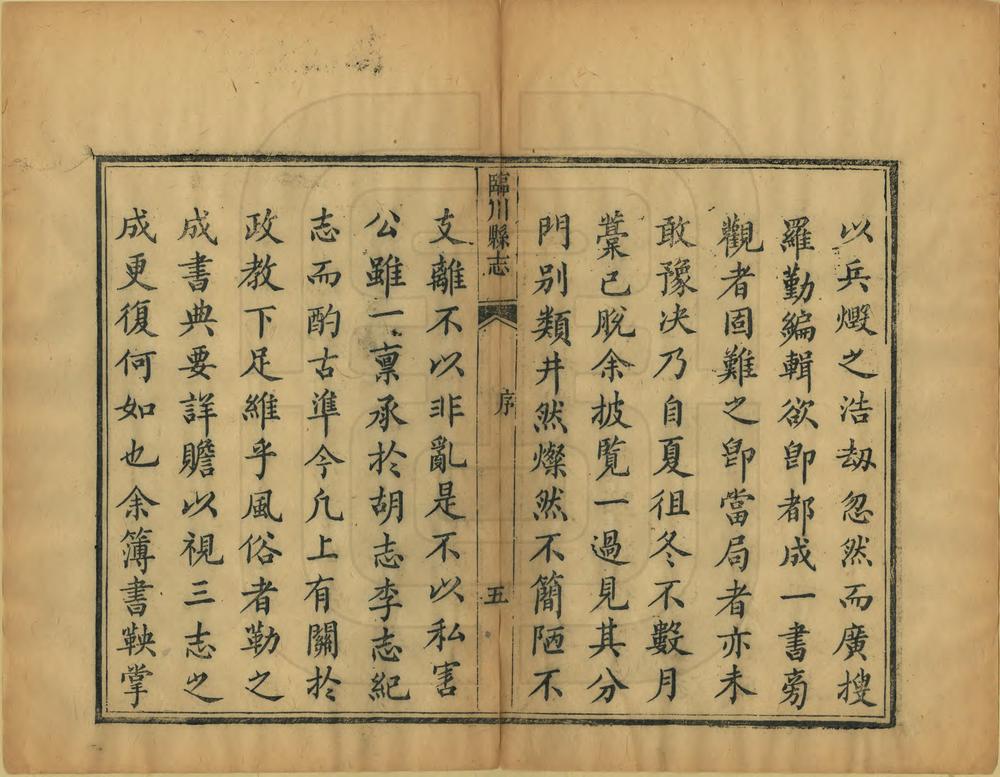 以兵燬之浩刼忽然而廣搜
羅勤編輯欲卽都成一書旁
觀者固難之卽當局者亦未
敢豫决乃自夏徂冬不數月
藁已脱余披覽一過見其分
門别類井然燦然不簡陋不
臨川縣志
序
五
支離不以非亂是不以私害
公雖一禀承於胡志李志紀
志而酌古準今凢上有關於
政教下足維乎風俗者勒之
成書典要詳贍以視三志之
成更復何如也余簿書鞅掌